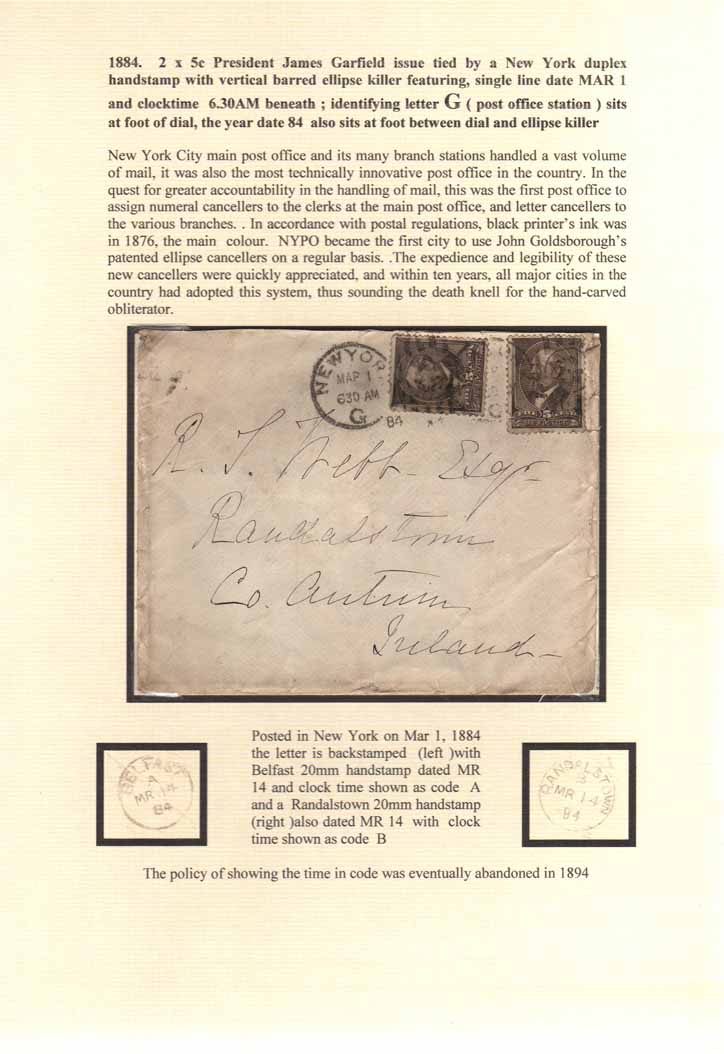 1884. 2 x 5c President James Garfield issue tied by a New York duplex
handstamp with vertical barred ellipse killer featuring, single line date MAR 1
and clocktime 6.30AM beneath ; identifying letter G ( post office station ) sits
at foot of dial, the year date 84 also sits at foot between dial and ellipse killer
New York City main post office and its many branch stations handled a vast volume
of mail, it was also the most technically innovative post office in the country. In the
quest for greater accountability in the handling of mail, this was the first post office to
assign numeral cancellers to the clerks at the main post office, and letter cancellers to
the various branches. . In accordance with postal regulations, black printer's ink was
in 1876, the main colour. NYPO became the first city to use John Goldsborough's
patented ellipse cancellers on a regular basis. .The expedience and legibility of these
new cancellers were quickly appreciated, and within ten years, all major cities in the
country had adopted this system, thus sounding the death knell for the hand-carved
obliterator.
NEW YOR
MAR 1
630 AM
G
84
5
R. T. Webb - Esqr-
Randalstown
Co. Antrim
Ireland-
BELFAST
A
MR 14
84
Posted in New York on Mar 1, 1884
the letter is backstamped (left )with
Belfast 20mm handstamp dated MR
14 and clock time shown as code A
and a Randalstown 20mm handstamp
(right )also dated MR 14 with clock
time shown as code B
RANDALSTOWN
B
MR 14
84
The policy of showing the time in code was eventually abandoned in 1894